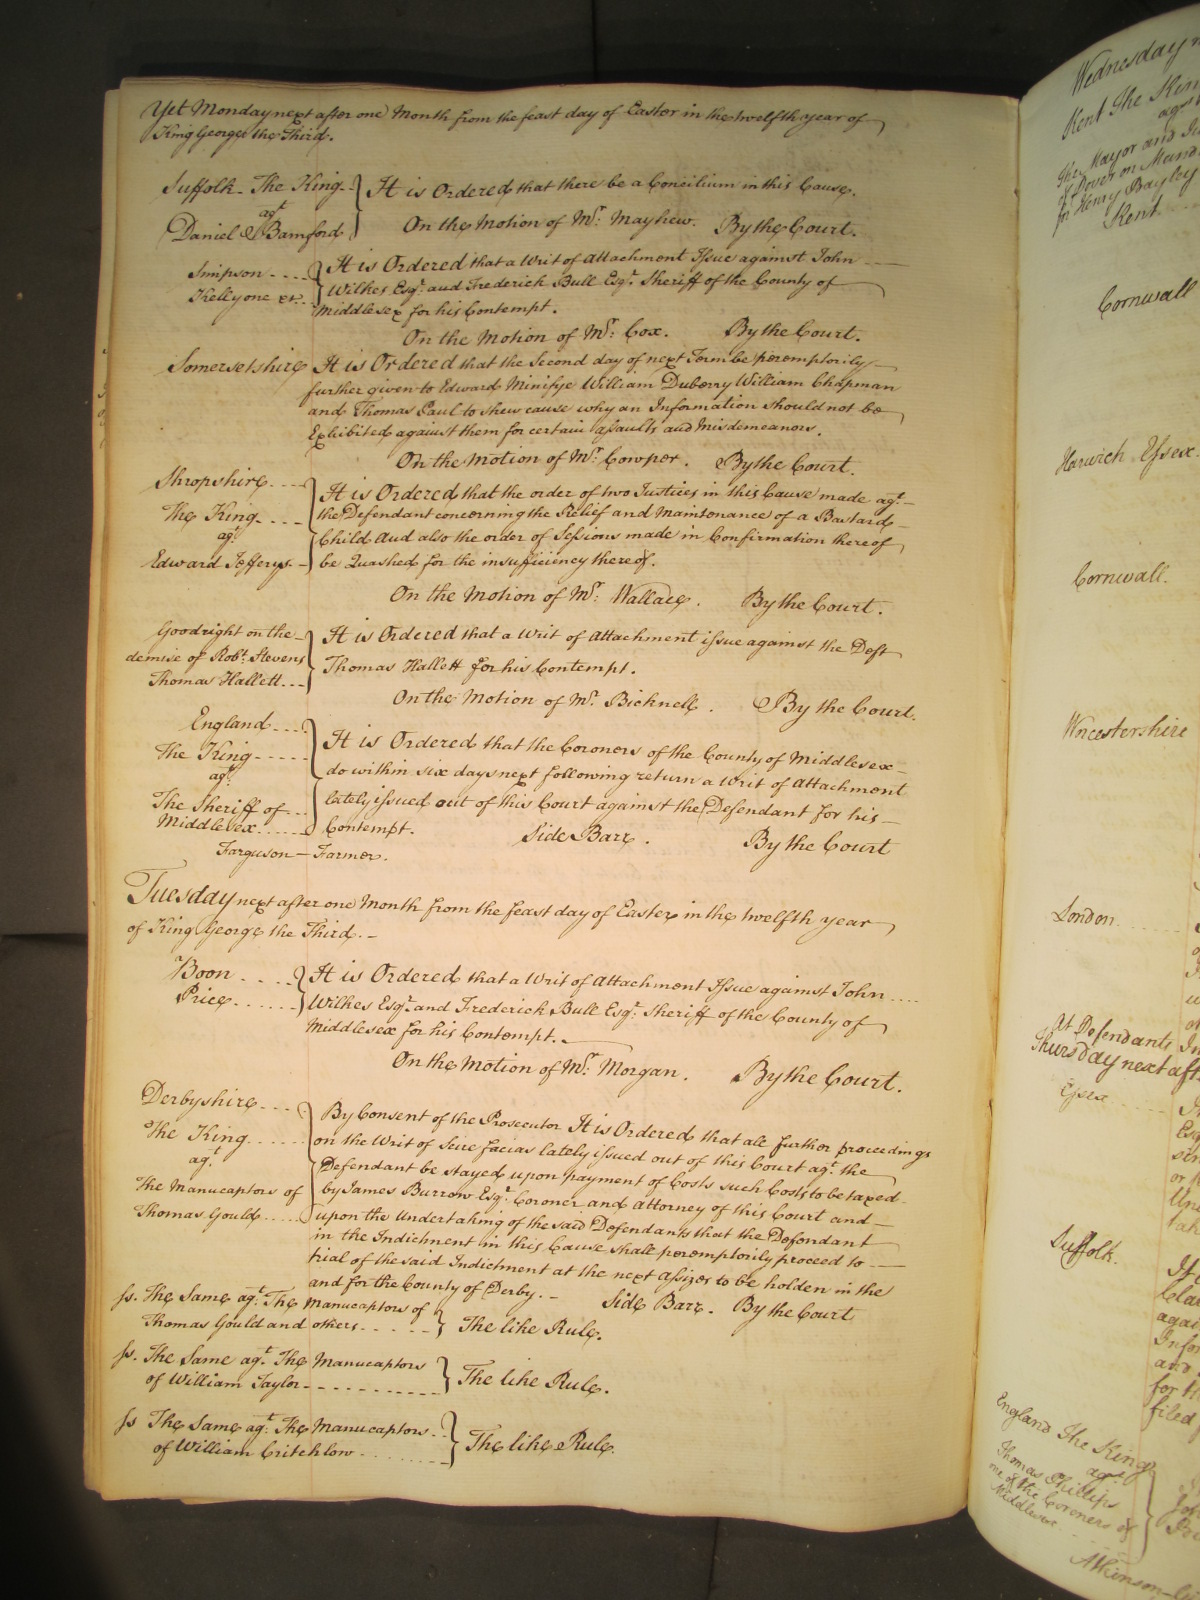 Yet Monday next after one Month from the feast day of Easter in the twelfth year of
King George the Third.
Suffolk - The King
agt
Daniel Bamford
It is Ordered that there be a Concilium in this Cause.
On the Motion of Mr. Mayhew. By the Court.
Simpson
Kelly one &c.
It is Ordered that a Writ of Attachment Issue against John
Wilkes Esqr. and Frederick Bull Esqr. Sheriff of the County of
Middlesex for his Contempt.
On the Motion of Mr. Cox. By the Court.
Somersetshire It is Ordered that the Second day of next Term be peremptorily
further given to Edward Minifye William Duberry William Chapman
and Thomas Paul to shew cause why an Information should not be
Exhibited against them for certain Assaults and Misdemeanors.
On the Motion of Mr. Cowper. By the Court.
Shropshire
The King
agt
Edward Jefferys
It is Ordered that the order of two Justices in this Cause made agt.
the Defendant concerning the Relief and Maintenance of a Bastard
Child And also the order of Sessions made in Confirmation thereof
be Quashed for the insufficiency thereof.
On the Motion of Mr. Wallace. By the Court.
Goodright on the
demise of Robt. Stevens
Thomas Hallett
It is Ordered that a Writ of Attachment issue against the Deft
Thomas Hallett for his Contempt.
On the Motion of Mr. Bicknell. By the Court.
England
The King
agt.
The Sheriff of
Middlesex
It is Ordered that the Coroners of the County of Middlesex
do within six days next following return a Writ of Attachment
lately issued out of this Court against the Defendant for his
Contempt. Side Barr. By the Court
Farguson - Farmer.
Tuesday next after one Month from the feast day of Easter in the twelfth year
of King George the Third.
Boon
Price
It is Ordered that a Writ of Attachment Issue against John
Wilkes Esqr. and Frederick Bull Esqr. Sheriff of the County of
Middlesex for his Contempt.
On the Motion of Mr. Morgan. By the Court.
Derbyshire
The King
agt.
The Manucaptors of
Thomas Gould
By Consent of the Prosecutor It is Ordered that all further proceedings
on the Writ of Scire facias lately issued out of this Court agt. the
Defendant be stayed upon payment of Costs such Costs to be taxed
by James Burrow Esqr. Coroner and Attorney of this Court and
upon the Undertaking of the said Defendants that the Defendant
in the Indictment in this Cause shall peremptorily proceed to
trial of the said Indictment at the next Assizes to be holden in the
and for the County of Derby. Side Barr. By the Court
ss. The Same agt. The Manucaptors of
Thomas Gould and others
The like Rule.
ss. The Same agt. The Manucaptors
of William Taylor
The like Rule.
ss The Same agt. The Manucaptors
of William Critchlow
The like Rule.
Wednesday
Kent The King
agt
The Mayor and
of Dover on
for Henry Bayley
Kent
Cornwall
Harwich Essex.
Cornwall.
Worcestershire
London
At Defendants
Thursday next aft
Essex
Suffolk.
agai
Infor
and
for
filed
England The King
agt
Thomas Phillips
one of the Coroners of
Middlesex
Atkinson